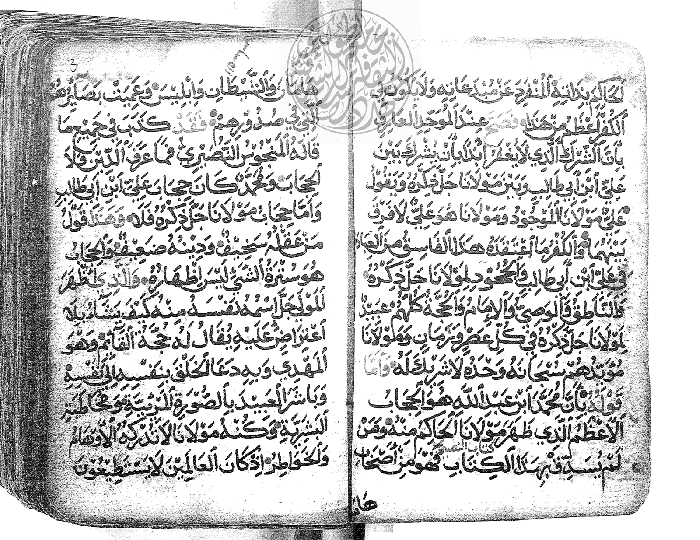 الحاكم بذاته المنفرد عن مبدعاته ولا يكون في
الكفر اعظم من هذا فصح عند الموحد العارف
بان الشرك الذي لا يغفر ابدا بان يشرك بين
علي ابن ابي طالب وبين مولانا جل ذكره ويقول
علي مولانا الموجود ومولانا هو علي لا فرق
بينهما والكفر ما اعتقده هذا الفاسق من العبادة
في علي ابن ابي طالب والجحود لمولانا جل ذكره
فالناطق والوصي والامام والحجة كلهم عبيد
لمولانا جل ذكره في كل عصر وزمان ومولانا
مؤيدهم سبحانه وحده لا شريك له واما
قوله بان محمد ابن عبد الله هو الحجاب
الاعظم الذي ظهر مولانا الحاكم منه ومن
لم يصدق بهذا الكتاب فهو من اصحاب
هامان
هامان والشيطان وابليس وعميت بصايرهم
التي في صدورهم فقد كذب في جميع ما
قاله المنجوس النصيري فما عرف الدين ولا
الحجاب ومحمد كان حجاب علي ابن ابي طالب
واما حجاب مولانا جل ذكره فلا وهذا قول
من عقله سخيف ودينه ضعيف والحجاب
هو سترة الشي ليس اظهاره والذي ظهر
المولى جل اسمه نفسه منه كيف يشاء بلا
اعتراض عليه يقال له حجة القائم وهو
المهدي وبه دعا الخلق بنفسه الى نفسه
وباشر العبيد بالصورة المرئية ومخاطبة
البشرية وكنه مولانا لا تدركه الاوهام
والخواطر اذ كان العالمين لا يستطيعون